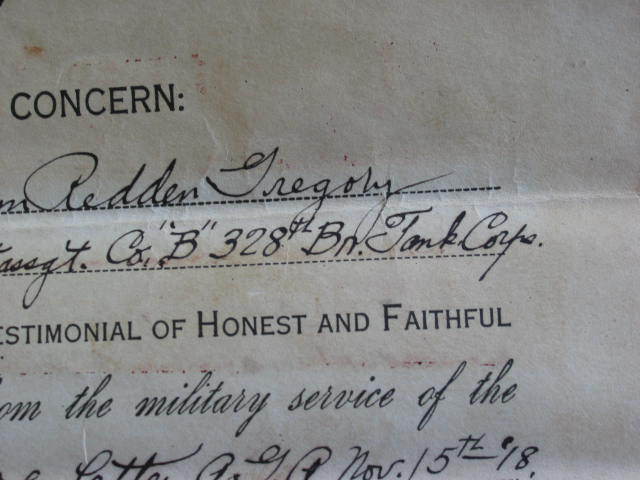 CONCERN:
Redden Gregory
Co. "B" 328th Bn. Tank Corps.
ESTIMONIAL OF HONEST AND FAITHFUL
om the military service of the
Nov. 15TH '18